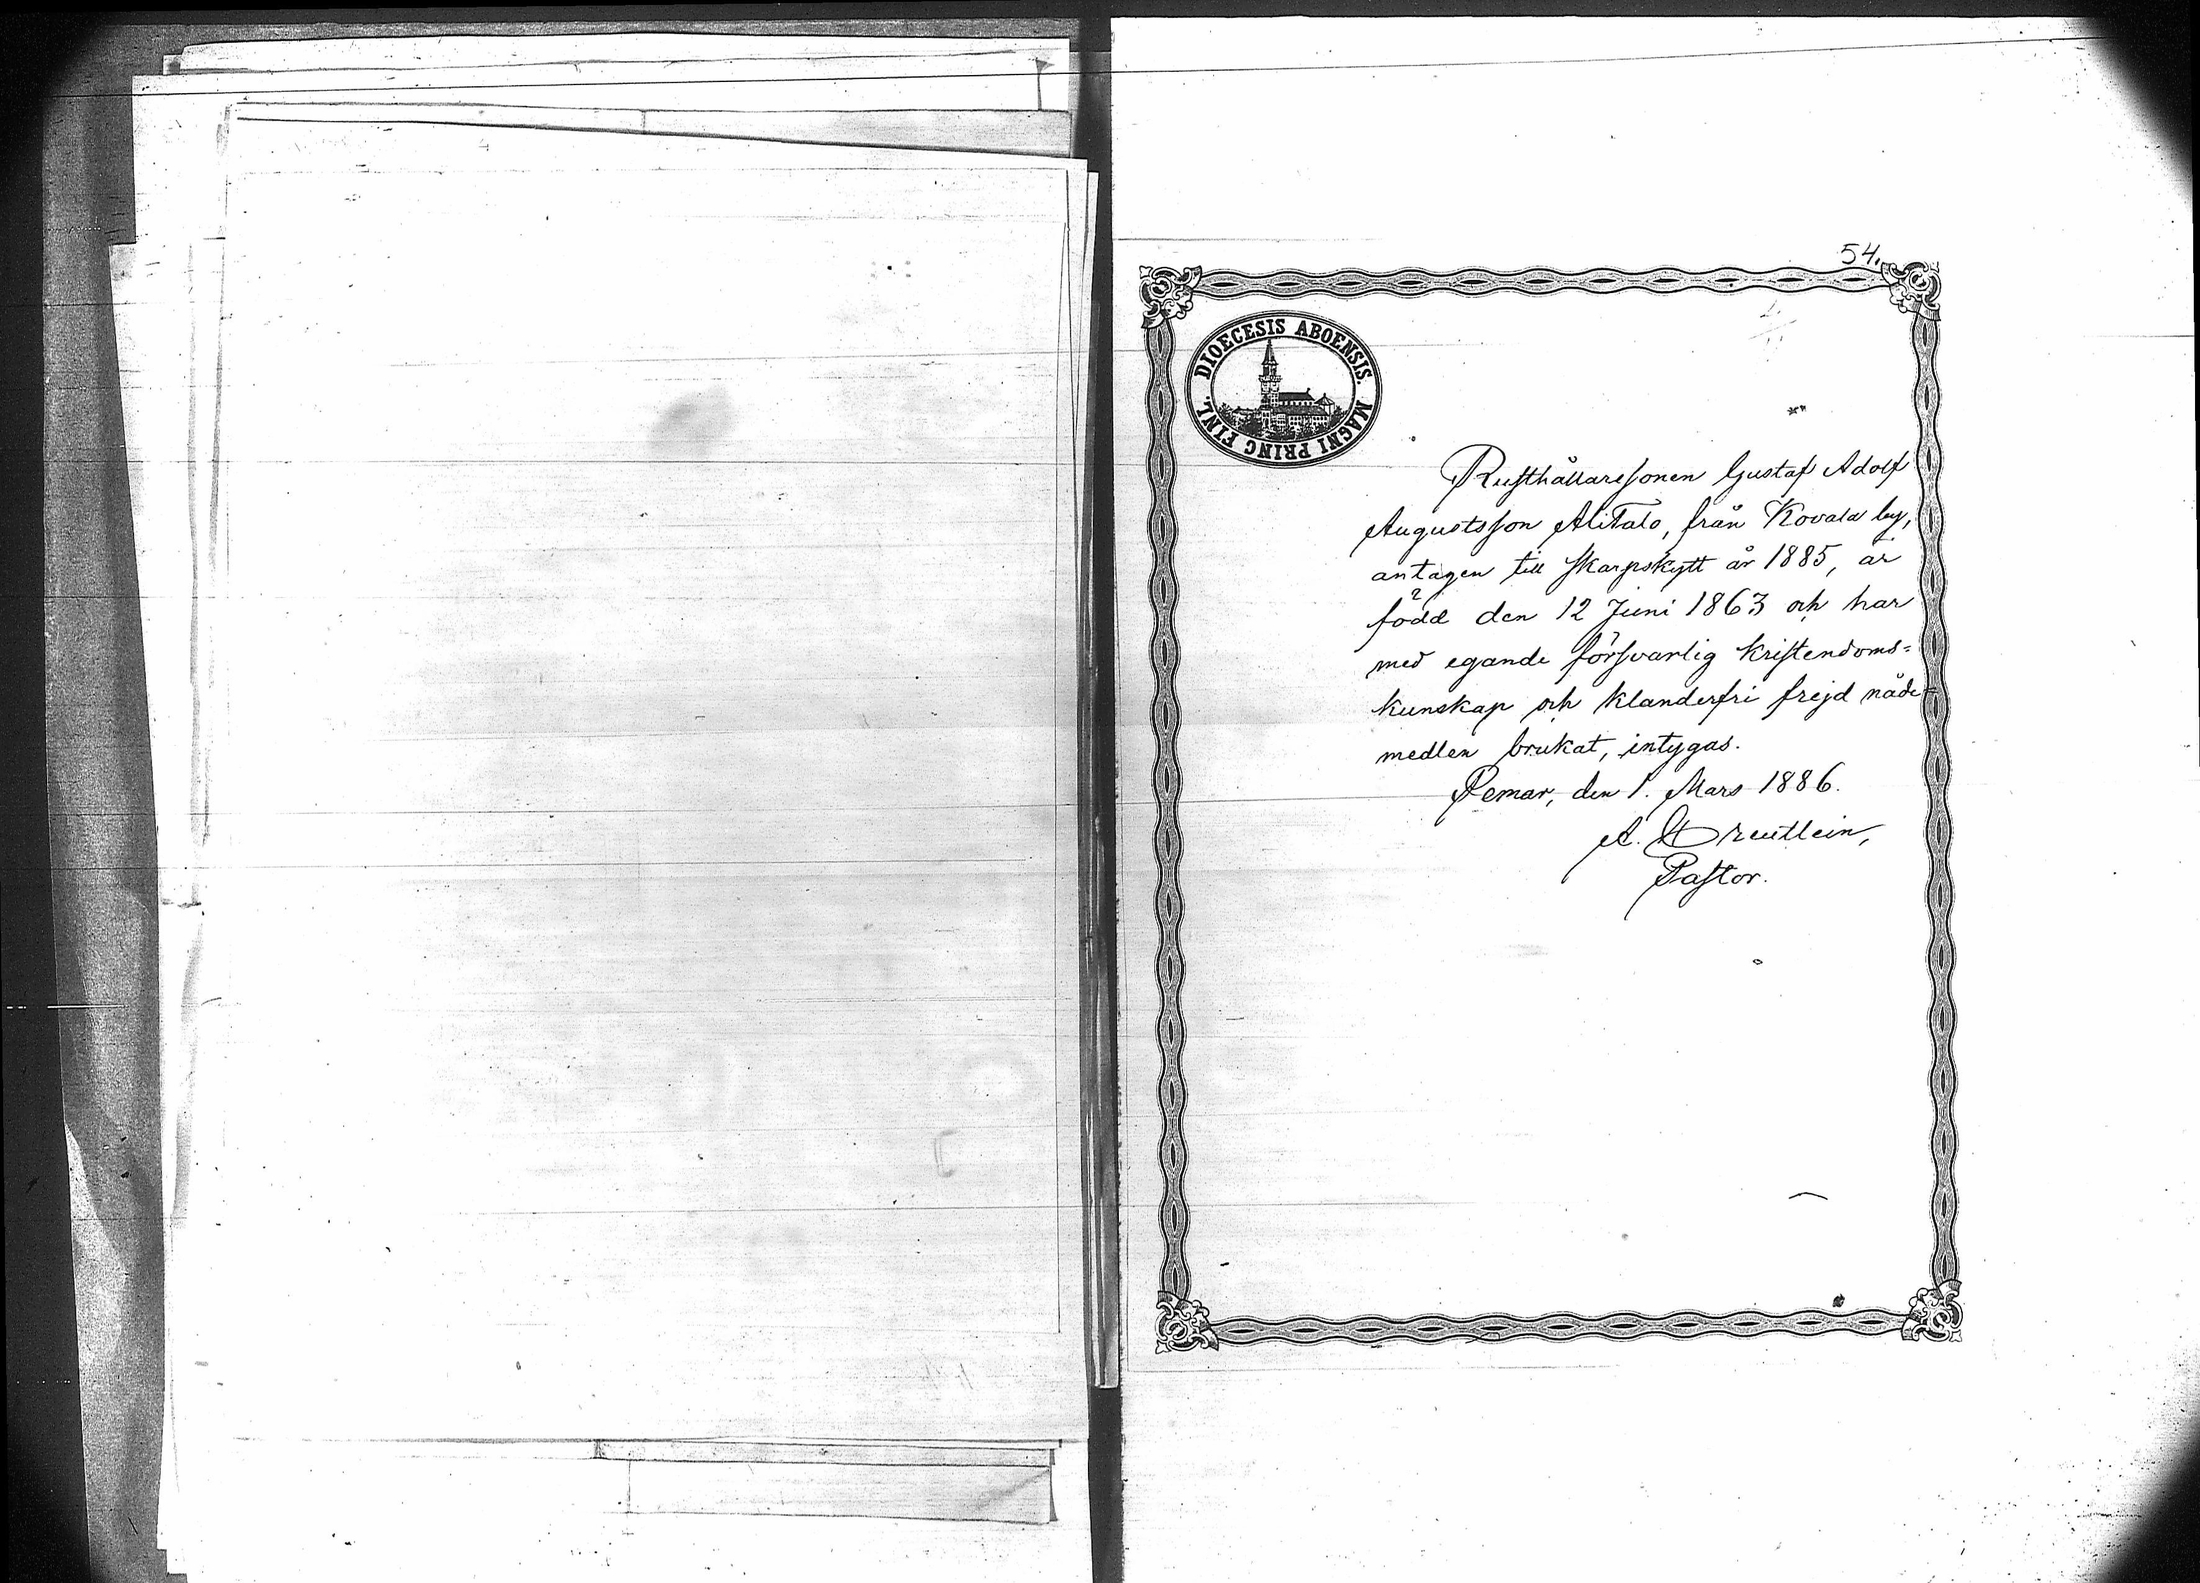 54.
DIOECESIS ABOENSIS. MAGNI PRINC FINL.
Rusthållaresonen Gustaf Adolf
Augustsson Alitalo, från Kovala by,
antagen till skarpskytt år 1885, är
född den 12 Juni 1863 och har
med egande försvarlig kristendoms=
kunskap och klanderfri frejd nåde-
medlen brukat, intygas.
Pemar, den 1. Mars 1886.
A. Dreutlein,
Pastor.